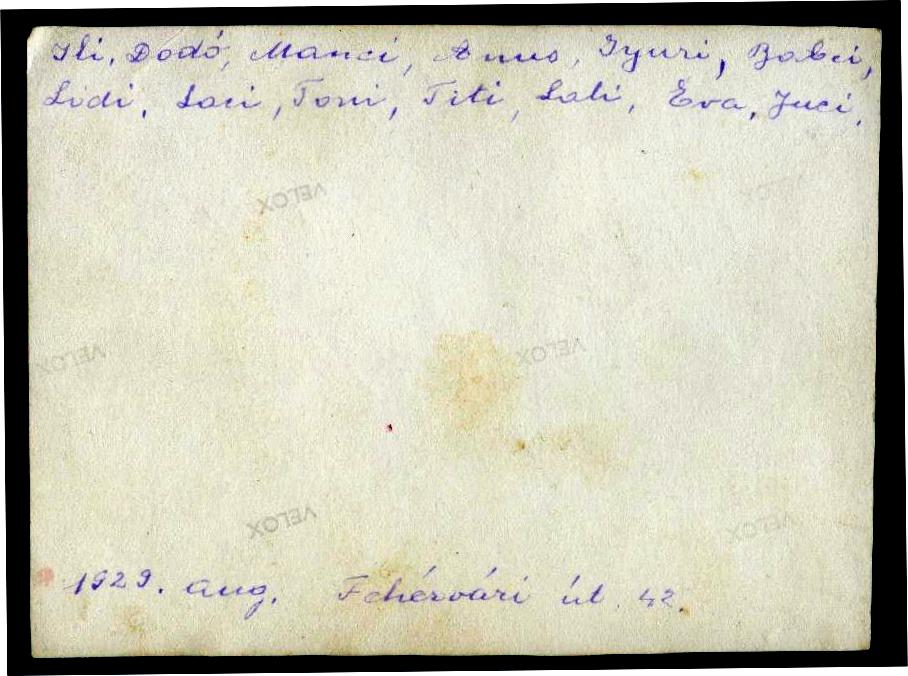 Ili, Dodó, Manci, Annus, Gyuri, Babci,
Lidi, Laci, Toni, Titi, Lali, Éva, Juci,
VELOX
VELOX
VELOX
VELOX
VELOX
VELOX
1929. aug. Fehérvári út 42.